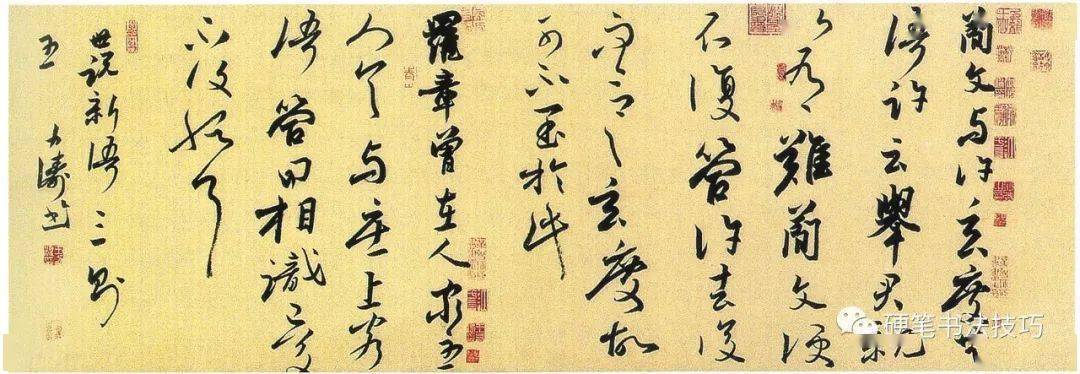 簡文与许玄度共
語许云舉君親
以为難簡文便
不復答许去後
而言曰玄度故
可不至於此
羅章曾在人家主
人令与坐上客
語答曰相識已多
不復烦
世說新語三則
王
大濤书
硬笔书法技巧